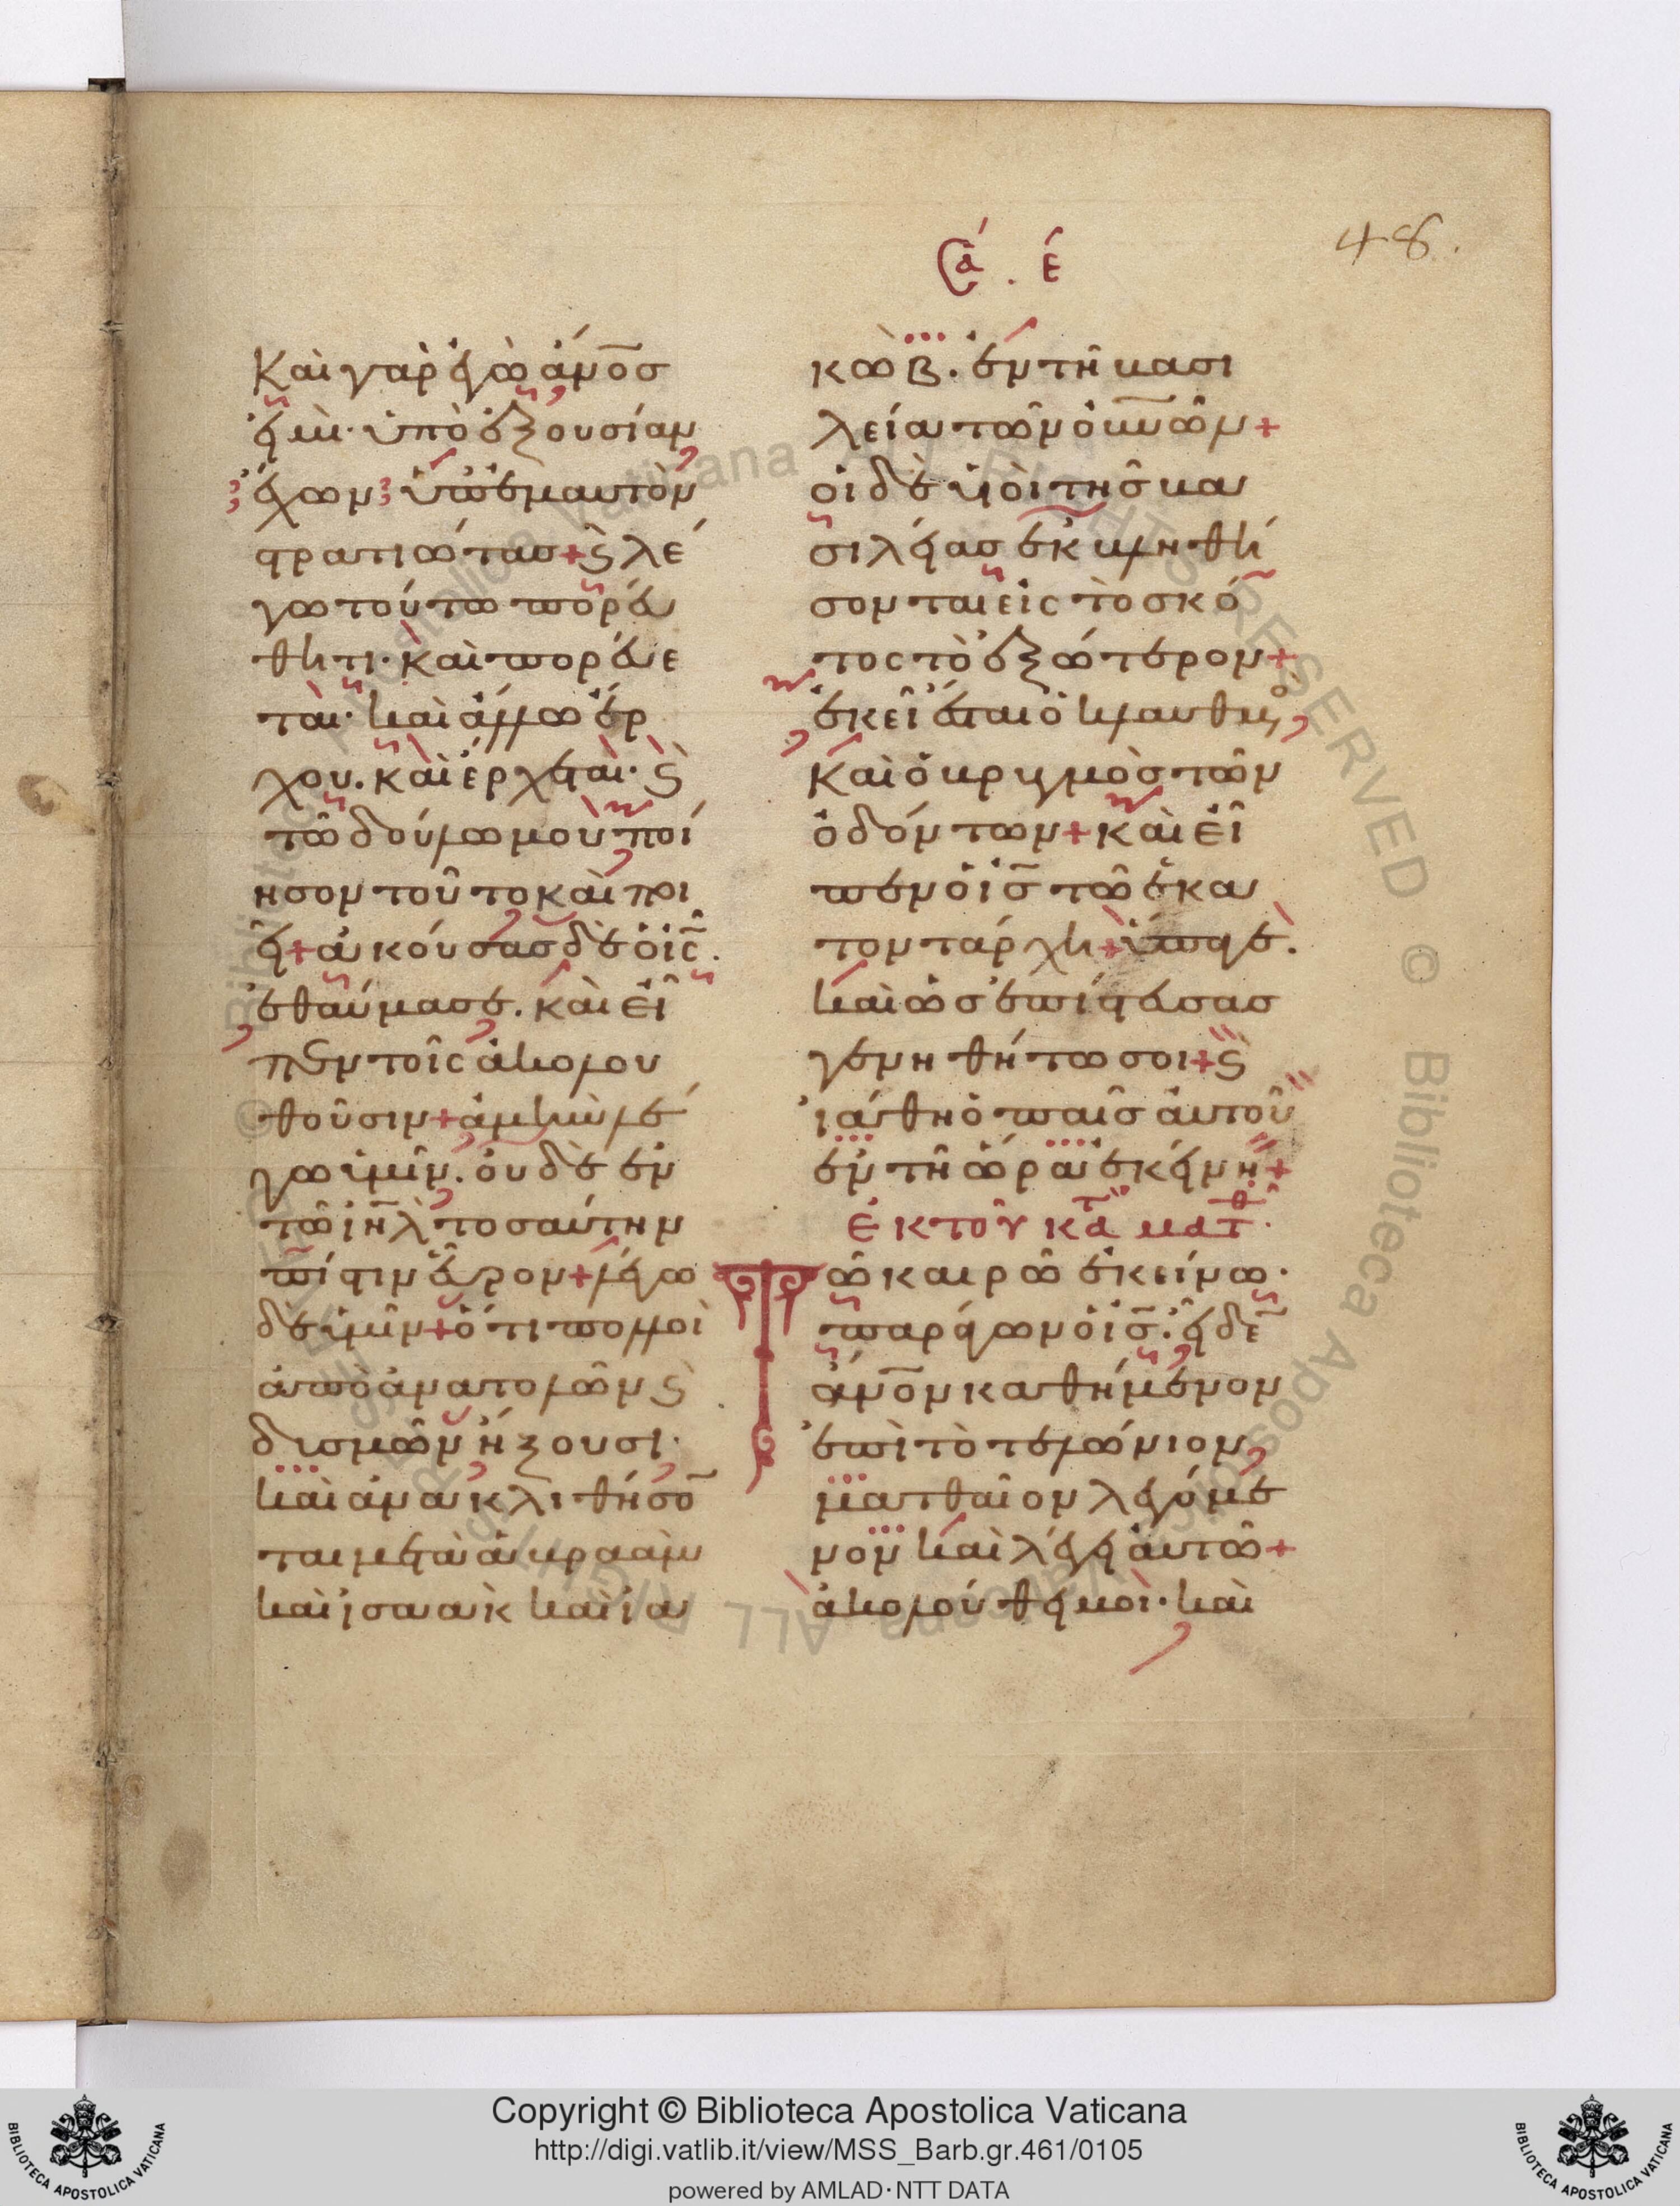 Σα . ε
48.
Καὶ γὰρ ἐγὼ ἄνος
εἰμι· ὑπὸ ἐξουσίαν
ἔχων ὑπ' ἐμαυτὸν
στρατιώτας + ϗ λέ
γω τούτω πορεύ
θητι· καὶ πορεύε
ται· καὶ ἄλλω ἔρ
χου. καὶ ἔρχεται· ϗ
τῶ δούλω μου ποί
ησον τοῦτο καὶ ποι
εῖ + ἀκούσας δὲ ὁ ις.
ἐθαύμασε. καὶ εἶ
πεν τοῖς ἀκολου
θοῦσιν + ἀμὴν λέ
γω ὑμῖν. οὐδὲ ἐν
τῶ ιηλ τοσαύτην
πίστιν εὗρον + λέγω
δὲ ὑμῖν + ὅτι πολλοὶ
ἀπὸ ἀνατολῶν ϗ
δυσμῶν ἥξουσι·
καὶ ἀνακλιθήσο
ται μετὰ ἀβραὰμ
καὶ ἰσαὰκ καὶ ἰα
κὼβ. ἐν τῆ βασι
λεία τῶν οὐνῶν +
οἱ δὲ υἱοὶ τῆς βα
σιλείας ἐκβληθή
σονται εἰς τὸ σκό
τος τὸ ἐξώτερον +
ἐκεῖ ἔσται ὁ κλαυθμὸς
Καὶ ὁ βρυγμὸς τῶν
ὀδόντων + καὶ εἶ
πεν ὁ ις τῶ ἑκα
τοντάρχη + ὕπαγε.
καὶ ὡς ἐπίστευσας
γενηθήτω σοι + ϗ
ἰάθη ὁ παῖς αὐτοῦ
ἐν τῆ ὥρα ἐκείνη +
ἐκ τοῦ κατὰ ματθ.
Τῶ καιρῶ ἐκείνω.
παράγων ὁ ις. εἶδε
ἄνον καθήμενον
ἐπὶ τὸ τελώνιον
ματθαῖον λεγόμε
νον καὶ λέγει αὐτῶ +
ἀκολούθει μοι· καὶ
Copyright © Biblioteca Apostolica Vaticana
http://digi.vatlib.it/view/MSS_Barb.gr.461/0105
powered by AMLAD·NTT DATA
BIBLIOTECA APOSTOLICA VATICANA
BIBLIOTECA APOSTOLICA VATICANA